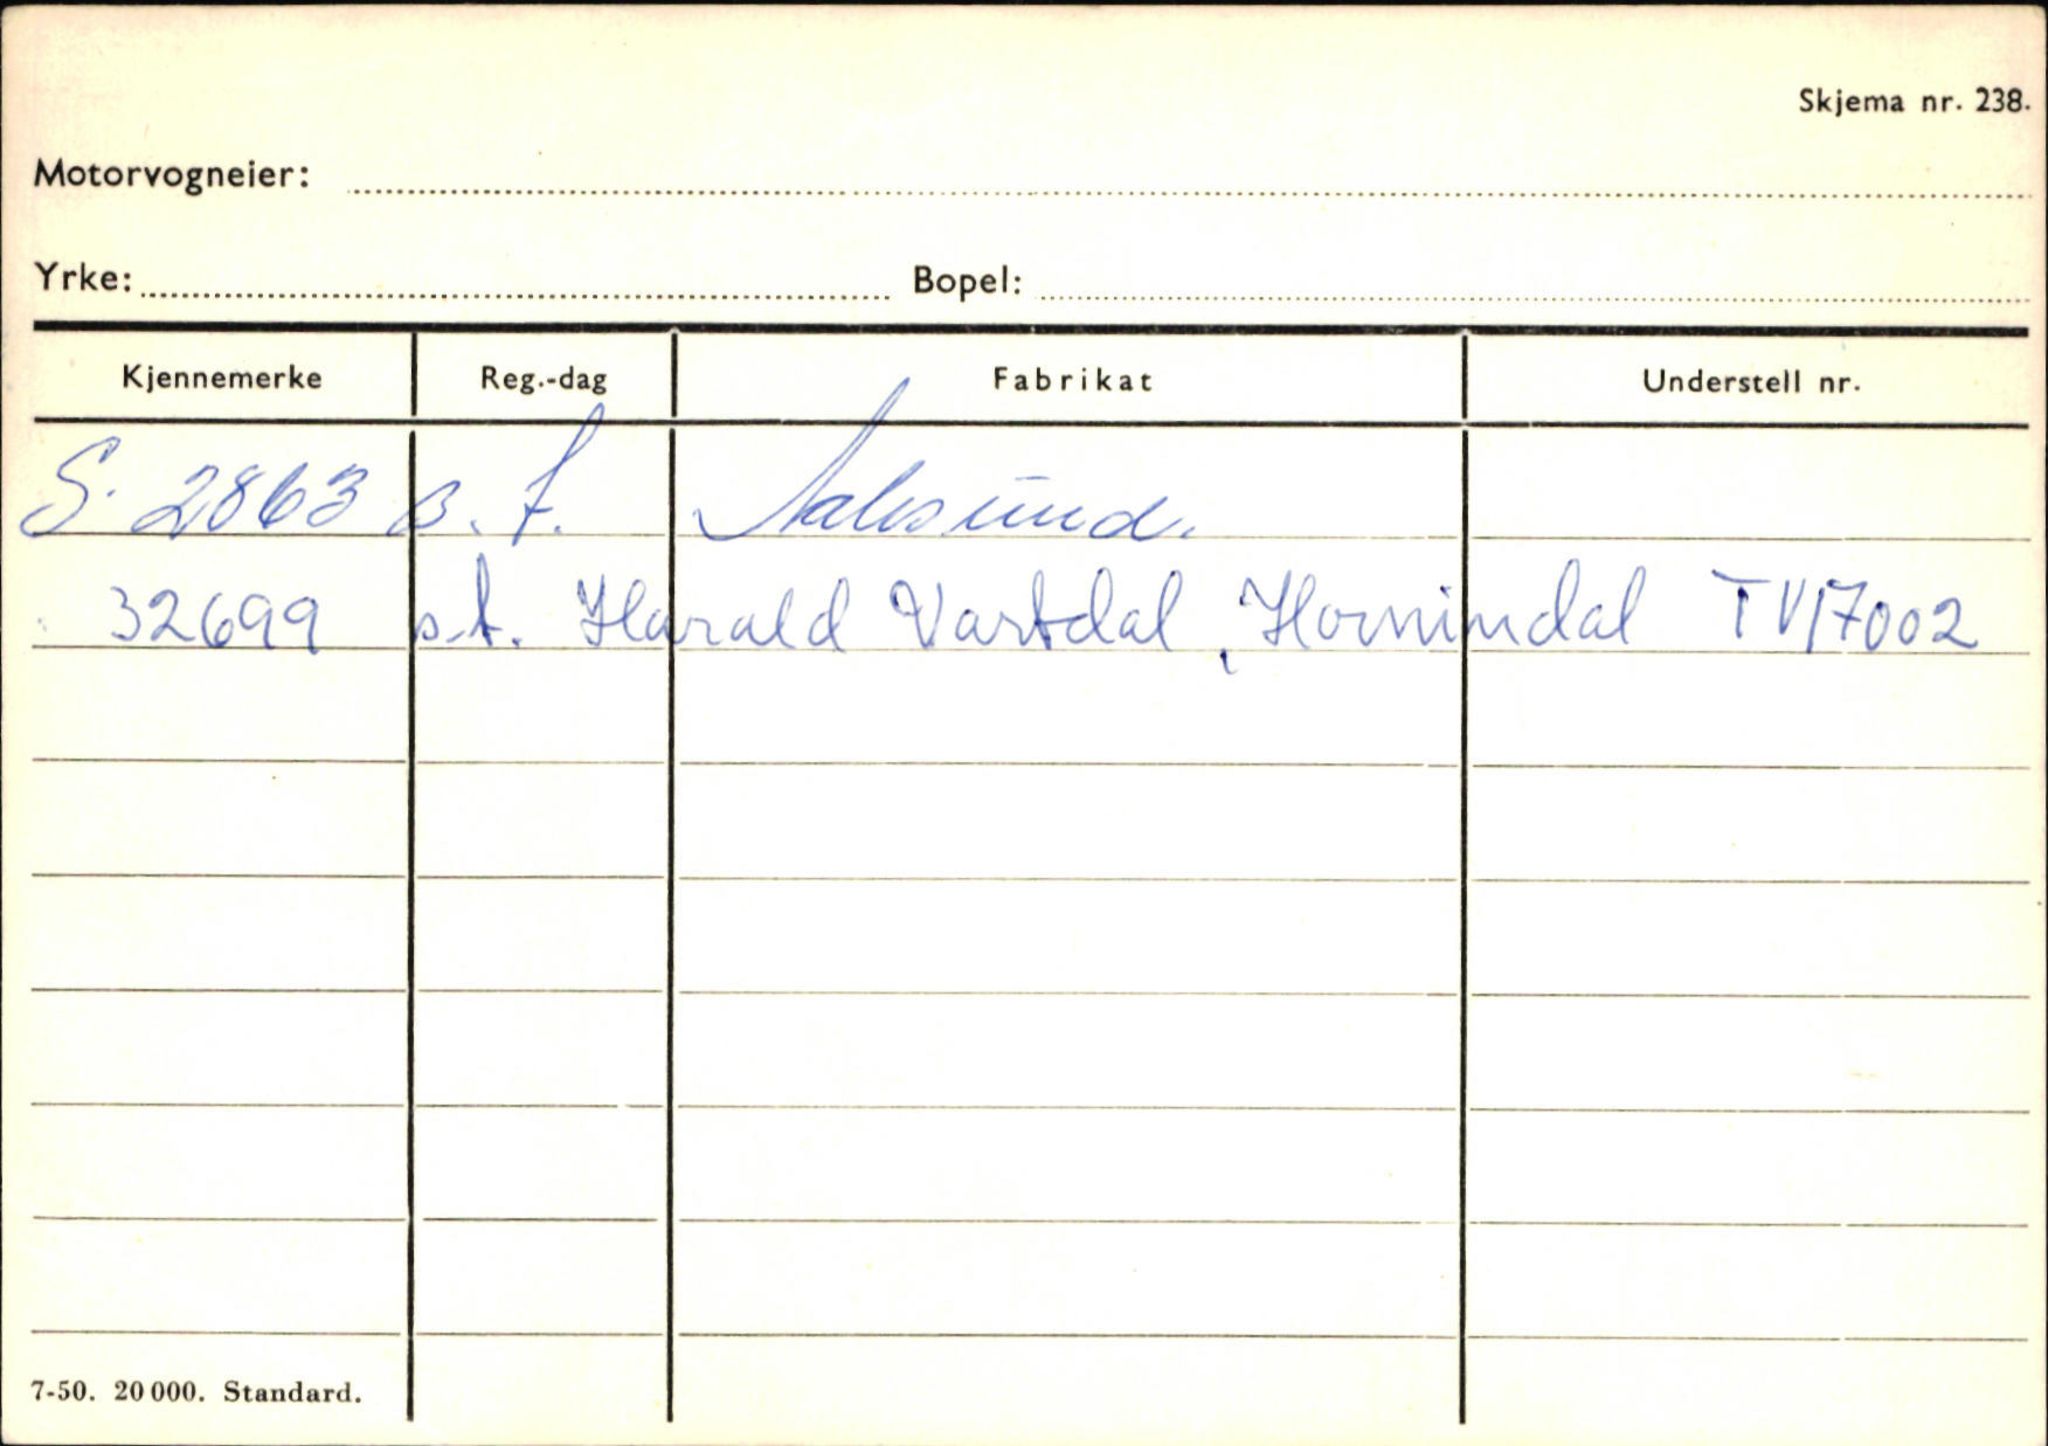 Skjema nr. 238.
Motorvogneier:
Yrke: Bopel:
Kjennemerke Reg.-dag Fabrikat Understell nr.
S. 2863 s. f. Aalesund.
32699 s.t. Harald Vartdal, Hornindal TV17002
7-50. 20 000. Standard.